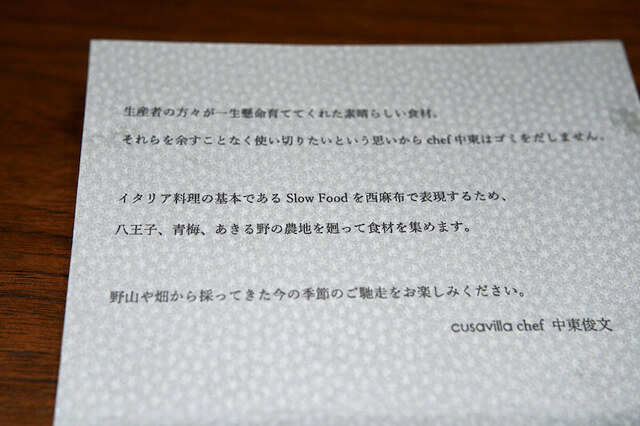 生産者の方々が一生懸命育ててくれた素晴らしい食材。
それらを余すことなく使い切りたいという思いから chef 中東はゴミをだしません。
イタリア料理の基本である Slow Food を西麻布で表現するため、
八王子、青梅、あきる野の農地を廻って食材を集めます。
野山や畑から採ってきた今の季節のご馳走をお楽しみください。
cusavilla chef 中東俊文